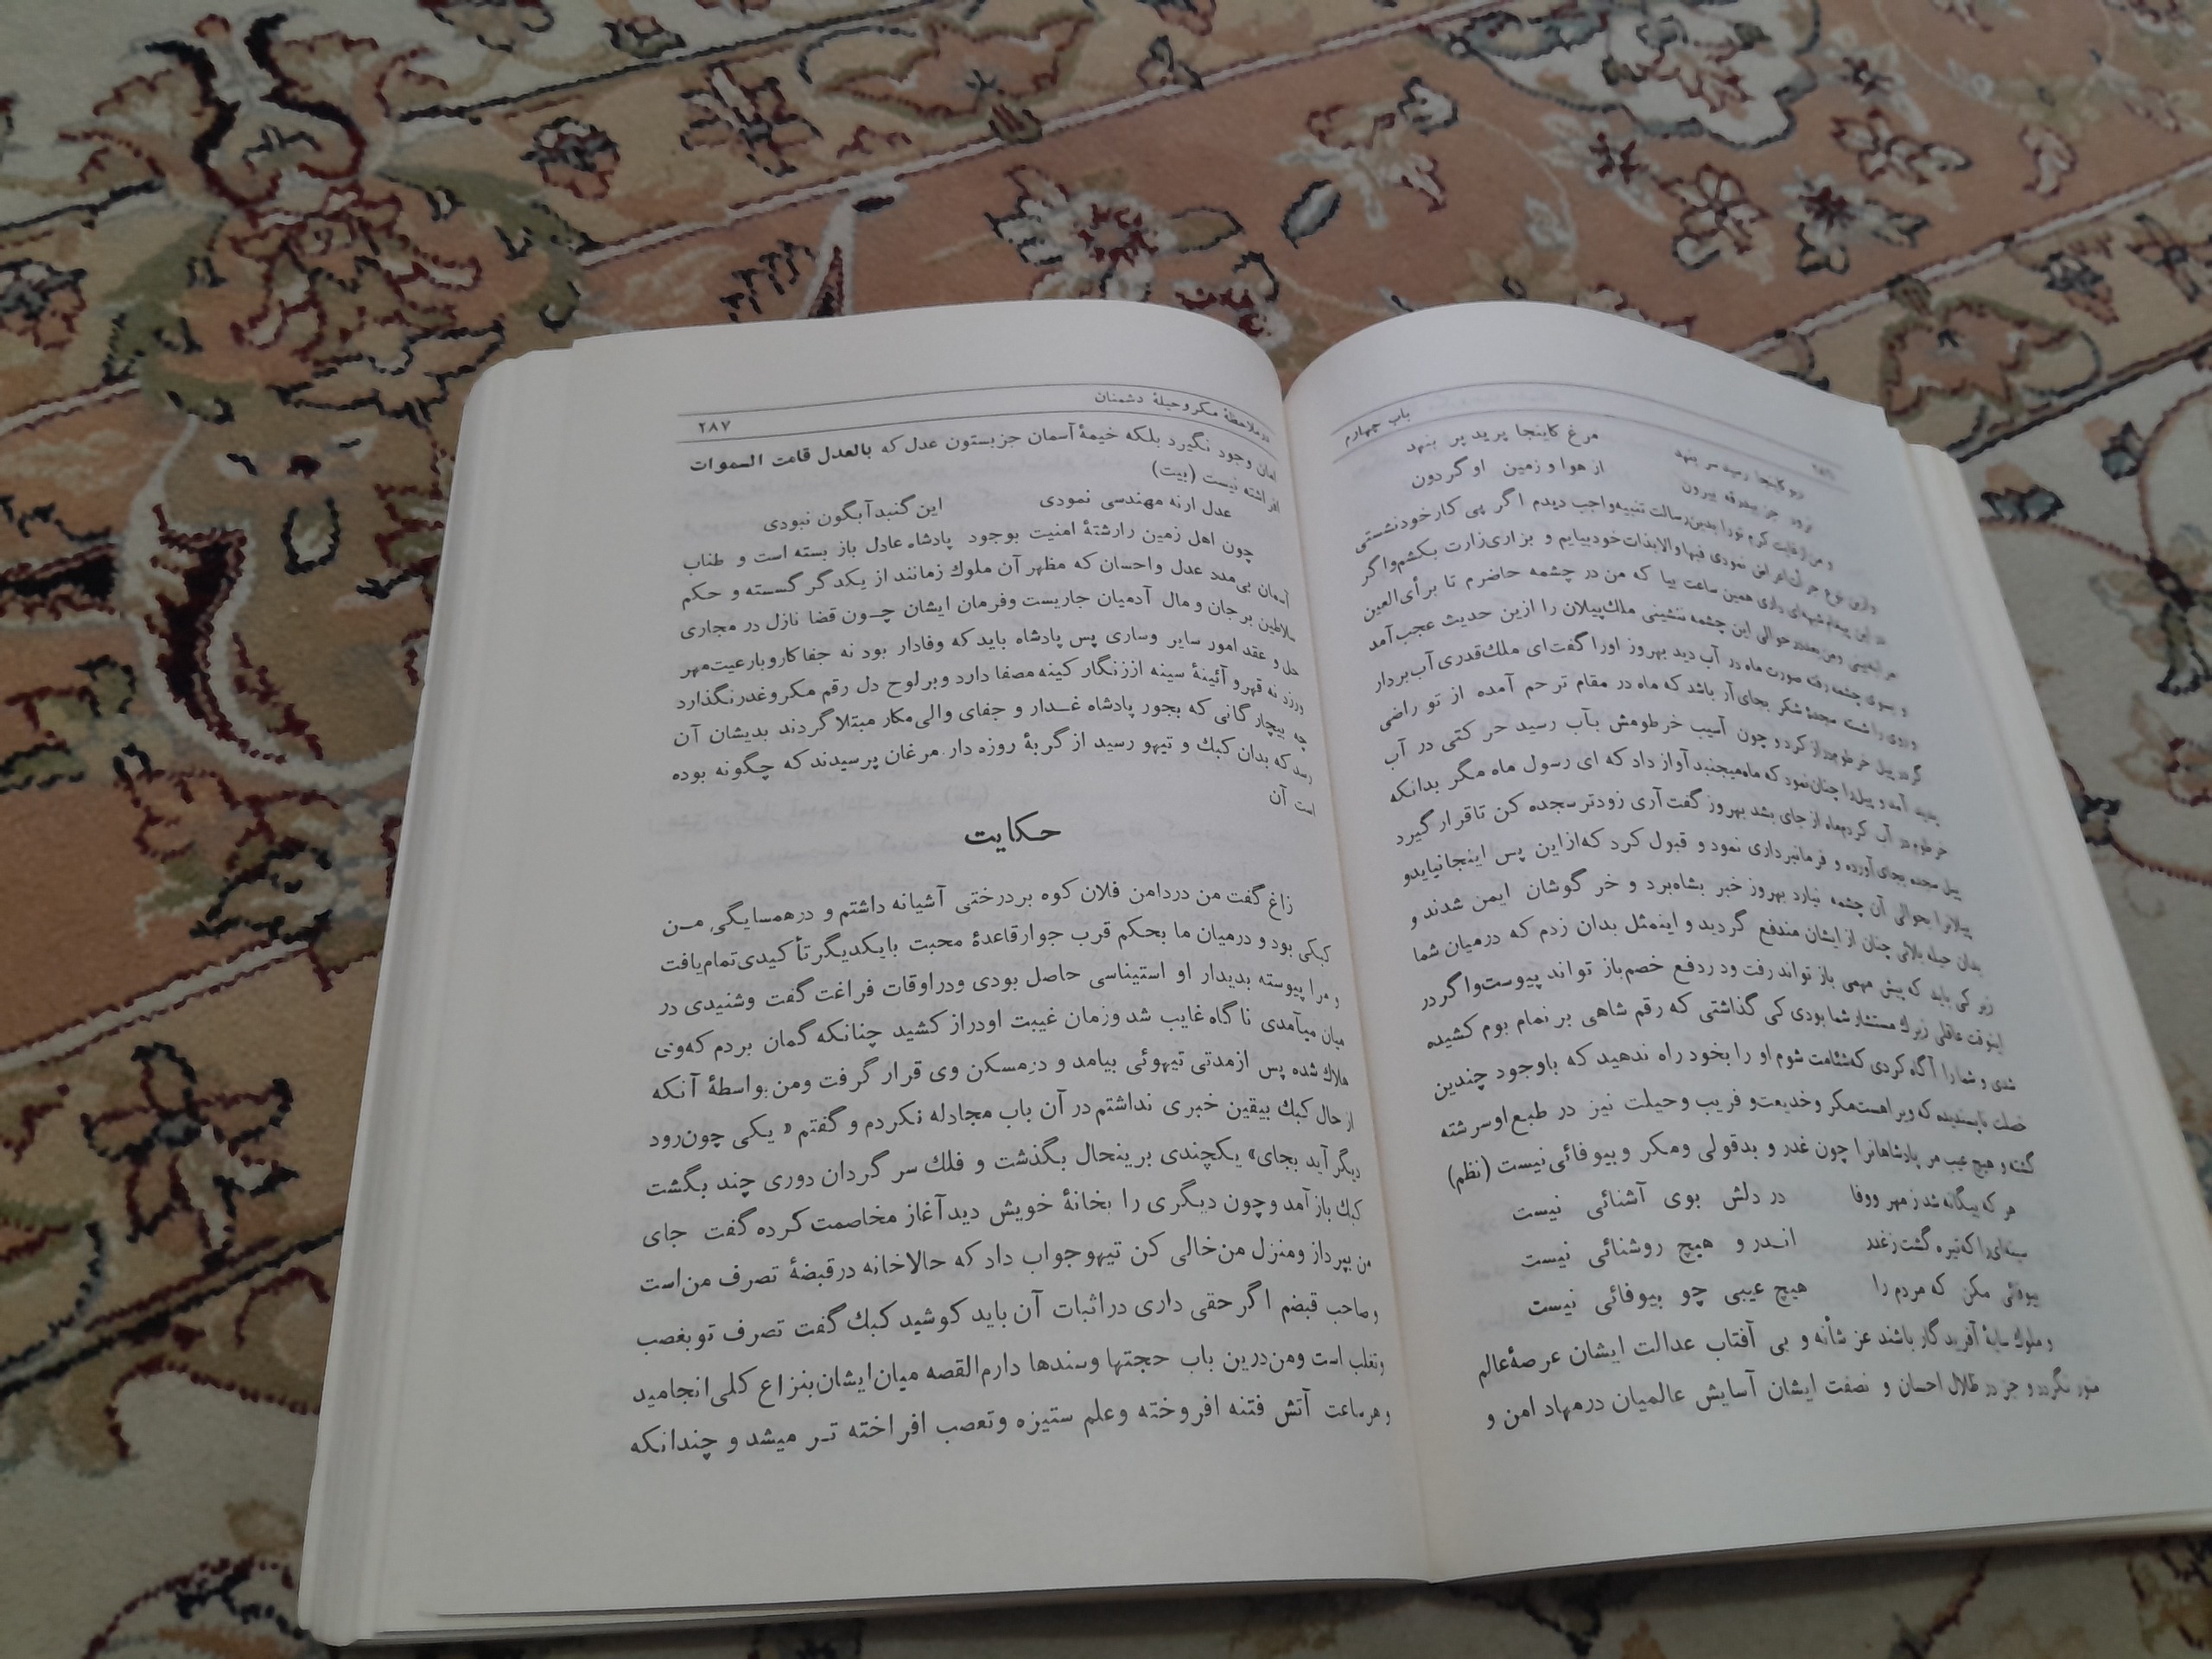 باب چهارم
مرغ کاینجا پرید پر بنهد
دیو کاینجا رسید سر بنهد
از هوا و زمین او گردون
نرود جز ببدرقه بیرون
و من از غایت کرم تورا بدین رسالت تنبیه واجب دیدم اگر پی کار خودنشستی
وازین نوع جرأت اعراض نمودی فبها والا بذات خودبیایم و بزاری‌زارت بکشم‌واگر
در این پیغام شبهه‌ای داری همین ساعت بیا که من در چشمه حاضرم تا برأی‌العین
مرا به‌بینی ومن‌بعد در حوالی این چشمه ننشینی ملك‌پیلان را ازین حدیث عجب‌آمد
و بسوی چشمه رفته صورت ماه در آب دید بهروز اورا گفت‌ای ملك‌قدری آب‌بردار
و روی را شسته سجدهٔ شکر بجای‌آر باشد که ماه در مقام ترحم آمده از تو راضی
گردد پیل خرطوم‌دراز کرد و چون آسیب خرطومش بآب رسید حرکتی در آب
پدید آمد و پیل‌را چنان‌نمود که ماه‌میجنبد آواز داد که ای رسول ماه مگر بدانکه
خرطوم در آب کردم‌ماه از جای بشد بهروز گفت آری زودتر سجده کن تاقرار گیرد
پیل سجده بجای آورده و فرمانبرداری نمود و قبول کرد که‌ازاین پس اینجانیایدو
پیلانرا بحوالی آن چشمه نیارد بهروز خبر بشاه‌برد و خرگوشان ایمن شدند و
بدان حیله بلائی چنان از ایشان مندفع گردید و اینمثل بدان زدم که درمیان شما
زیرکی باید که پیش مهمی باز تواند رفت ودردفع خصم‌باز تواند پیوست‌واگردر
اینوقت عاقلی زیرك مستشار شما بودی کی گذاشتی که رقم شاهی بر نمام بوم کشیده
شدی و شما را آگاه کردی که‌شئامت شوم او را بخود راه ندهید که باوجود چندین
خصلت ناپسندیده که ویراهست‌مکر وخدیعت‌و فریب وحیلت نیز در طبع اوسرشته
گشته و هیچ عیب مر پادشاهانرا چون غدر و بدقولی ومکر وبیوفائی‌نیست (نظم)
هر که بیگانه شد ز مهر ووفا
در دلش بوی آشنائی نیست
سینه‌ای‌را که‌تیره گشت‌زغدر
انـدر و هیچ روشنائی نیست
بیوفائی مکن که مردم را
هیچ عیبی چو بیوفائی نیست
و ملوك سایهٔ آفریدگار باشند عز شأنه و بی آفتاب عدالت ایشان عرصهٔ‌عالم
منور نگردد و جز در ظلال احسان و نصفت ایشان آسایش عالمیان درمهاد امن و
درملاحظهٔ مکروحیلهٔ دشمنان
۲۸۷
امان وجود نگیرد بلکه خیمهٔ آسمان جزبستون عدل که بالعدل قامت السموات
افراشته نیست (بیت)
عدل ارنه مهندسی نمودی
این گنبدآبگون نبودی
چون اهل زمین رارشتهٔ امنیت بوجود پادشاه عادل باز بسته است و طناب
آسمان بی‌مدد عدل واحسان که مظهر آن ملوك زمانند از یکدگر گسسته و حکم
سلاطین برجان و مال آدمیان جاریست وفرمان ایشان چـون قضا نازل در مجاری
حل و عقد امور سایر وساری پس پادشاه باید که وفادار بود نه جفاکاروبارعیت‌مهر
ورزد نه قهرو آئینهٔ سینه اززنگار کینه مصفا دارد وبرلوح دل رقم مکروغدرنگذارد
چه بیچارگانی که بجور پادشاه غـدار و جفای والی‌مکار مبتلاگردند بدیشان آن
رسد که بدان کبك و تیهو رسید از گربهٔ روزه دار. مرغان پرسیدند که چگونه بوده
است آن
حکایت
زاغ گفت من دردامن فلان کوه بردرختی آشیانه داشتم و درهمسایگی مـن
کبکی بود و درمیان ما بحکم قرب جوارقاعدهٔ محبت بایکدیگرتأکیدی‌تمام‌یافت
و مرا پیوسته بدیدار او استیناسی حاصل بودی ودراوقات فراغت گفت وشنیدی در
میان میآمدی ناگاه غایب شد وزمان غیبت اودراز کشید چنانکه گمان بردم که‌وی
هلاك شده پس ازمدتی تیهوئی بیامد و درمسکن وی قرار گرفت ومن‌بواسطهٔ آنکه
از حال کبك بیقین خبری نداشتم در آن باب مجادله نکردم و گفتم « یکی چون‌رود
دیگر آید بجای» یکچندی برینحال بگذشت و فلك سرگردان دوری چند بگشت
کبك باز آمد وچون دیگری را بخانهٔ خویش دیدآغاز مخاصمت کرده گفت جای
من بپرداز ومنزل من‌خالی کن تیهوجواب داد که حالاخانه درقبضهٔ تصرف من‌است
وصاحب قبضم اگر حقی داری دراثبات آن باید کوشید کبك گفت تصرف توبغصب
وتغلب است ومن‌درین باب حجتها وسندها دارم‌القصه میان‌ایشان‌بنزاع کلی‌انجامید
وهرساعت آتش فتنه افروخته وعلم ستیزه وتعصب افراخته تـر میشد و چندانکه